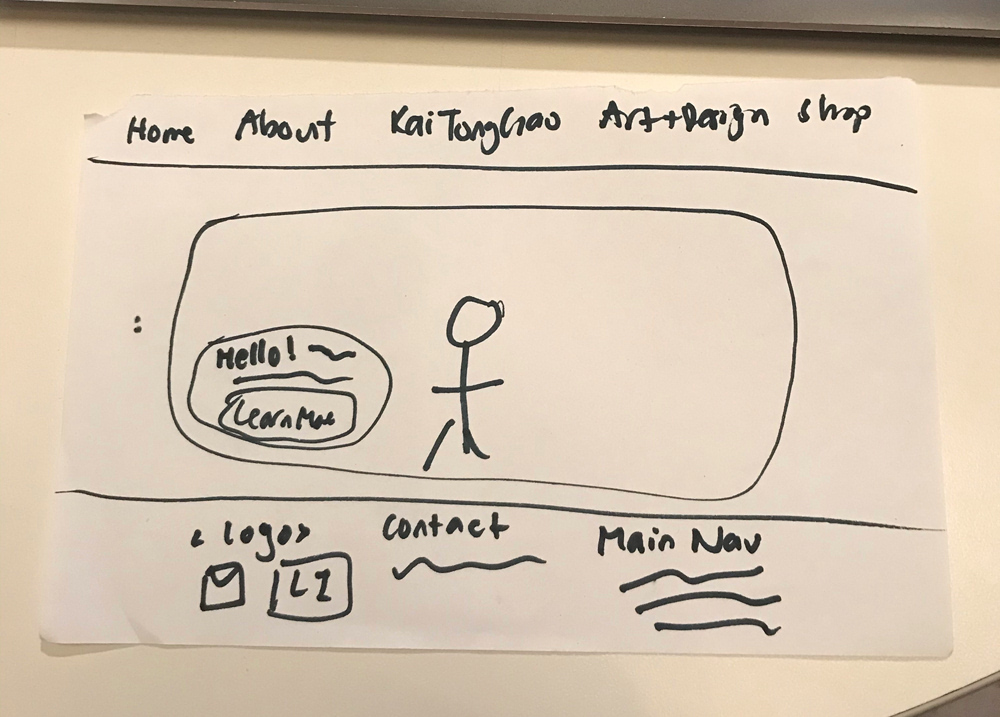 Home About KaiTongChao Art+Design Shop
Hello!
Learn More
< Logo>
Contact
Main Nav